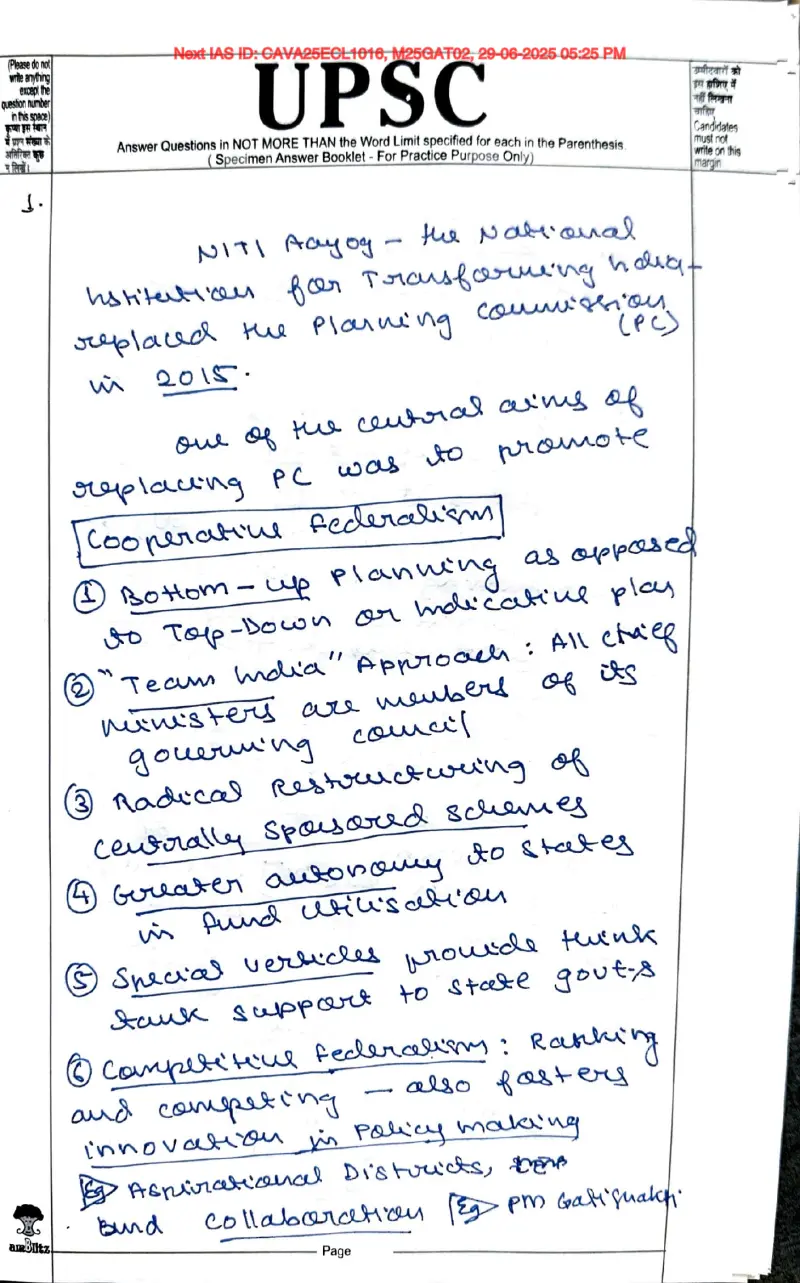 Next IAS ID: CAVA25ECL1016, M25GAT02, 29-06-2025 05:25 PM
(Please do not
write anything
except the
question number
in this space)
कृपया इस स्थान
में प्रश्न संख्या के
अतिरिक्त कुछ
न लिखें।
UPSC
Answer Questions in NOT MORE THAN the Word Limit specified for each in the Parenthesis.
(Specimen Answer Booklet - For Practice Purpose Only)
उम्मीदवारों को
इस हाशिए में
नहीं लिखना
चाहिए
Candidates
must not
write on this
margin
1.
NITI Aayog – the National
Institution for Transforming India –
replaced the Planning Commission
(PC)
in 2015.
One of the central aims of
replacing PC was to promote
Cooperative Federalism
① Bottom-up planning as opposed
to Top-Down or Indicative plan
② "Team India" Approach: All chief
ministers are members of its
governing council
③ Radical Restructuring of
centrally sposored schemes
④ Greater autonomy to states
in fund utilisation
⑤ Special verticles provide think
tank support to state govt-s
⑥ Competitive federalism: Ranking
and competing – also fosters
innovation in policy making
Eg Aspirational Districts,
and collaboration Eg PM Gatishakti
Page